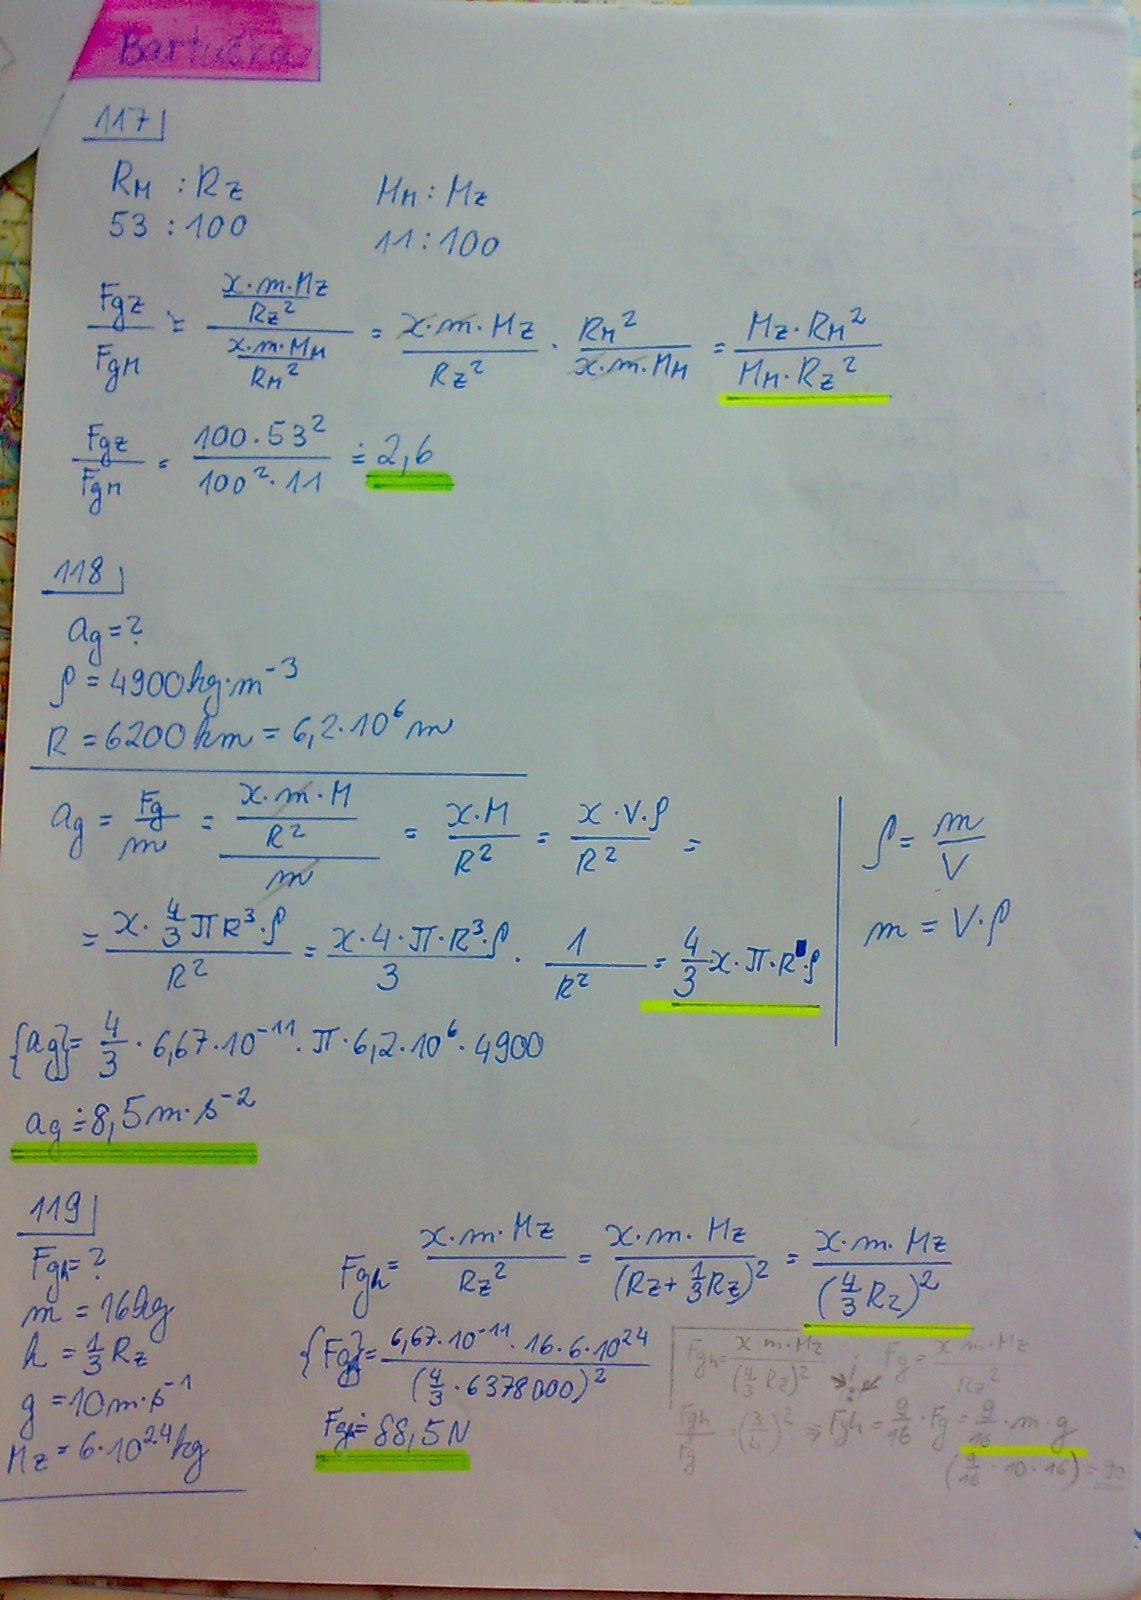 Bartuška
117
R_M : R_Z    M_M : M_Z
53 : 100    11 : 100
F_gZ / F_gM = (x·m·M_Z / R_Z²) / (x·m·M_M / R_M²) = x·m·M_Z / R_Z² · R_M² / x·m·M_M = M_Z·R_M² / M_M·R_Z²
F_gZ / F_gM = 100·53² / 100²·11 ≐ 2,6
118
a_g = ?
ρ = 4900 kg·m⁻³
R = 6200 km = 6,2·10⁶ m
a_g = F_g / m = (x·m·M / R²) / m = x·M / R² = x·V·ρ / R² =
ρ = m / V
m = V·ρ
= x·4/3 πR³·ρ / R² = x·4·π·R³·ρ / 3 · 1 / R² = 4/3 x·π·R·ρ
{a_g} = 4/3 · 6,67·10⁻¹¹·π·6,2·10⁶·4900
a_g ≐ 8,5 m·s⁻²
119
F_gh = ?
m = 16 kg
h = 1/3 R_Z
g = 10 m·s⁻¹
M_Z = 6·10²⁴ kg
F_gh = x·m·M_Z / R_Z² = x·m·M_Z / (R_Z + 1/3 R_Z)² = x·m·M_Z / (4/3 R_Z)²
{F_gh} = 6,67·10⁻¹¹·16·6·10²⁴ / (4/3 · 6378000)²
F_gh ≐ 88,5 N
F_gh = x·m·M_Z / (4/3 R_Z)²    F_g = x·m·M_Z / R_Z²
F_gh / F_g = (3/4)² ⇒ F_gh = 9/16 · F_g = 9/16 · m·g
(9/16 · 10 · 16) = 90